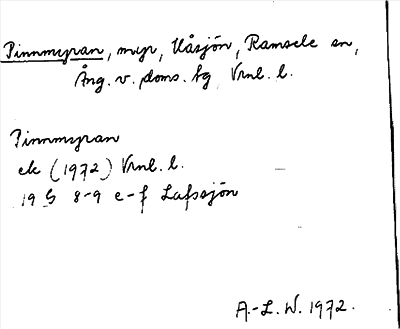 Pinnmyran, myr, Uåsjön, Ramsele sn,
Ång. v. doms. tg Vrnl. l.
Pinnmyran
ek (1972) Vrnl. l.
19 G 8-9 e-f Lafssjön
A.-L. W. 1972.